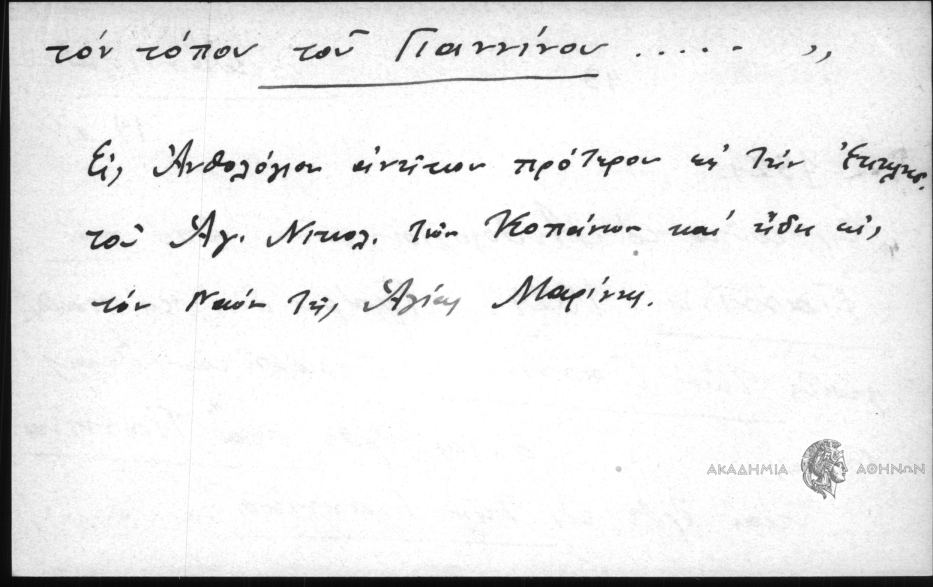 τόν τόπον τοῦ Γιαννίνου ..... „
Εἰς Ἀνθολόγιον ἀνῆκον πρότερον εἰς τήν
τοῦ Ἁγ. Νικολ. τῶν Κοπάνων καί ἤδη εἰς
τόν Ναόν τῆς Ἁγίας Μαρίνης.
ΑΚΑΔΗΜΙΑ ΑΘΗΝΩΝ